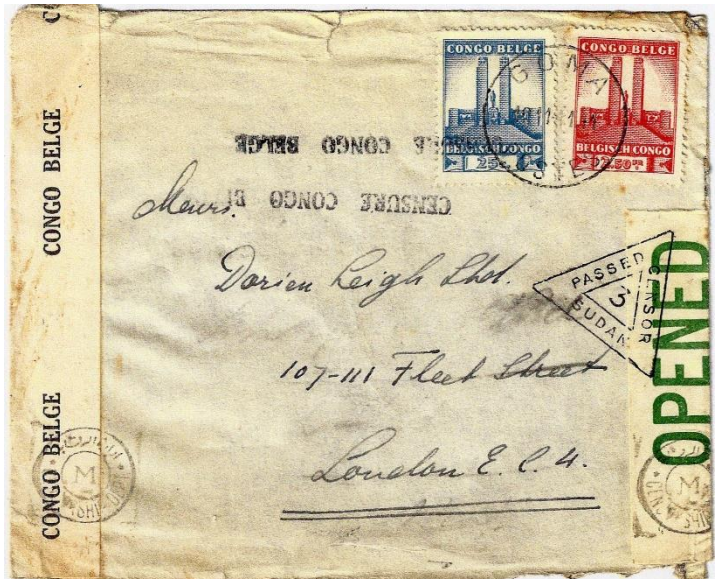 CONGO BELGE
CONGO BELGE
CONGO BELGE
BELGISCH CONGO
CONGO BELGE
BELGISCH CONGO
GOMA
CONGO BELGE
CENSURE CONGO
Messrs.
Dorien Leigh Ltd.
107-111 Fleet Street
London E.C.4.
PASSED
CENSOR
SUDAN
3
OPENED
CONGO BELGE
M
M